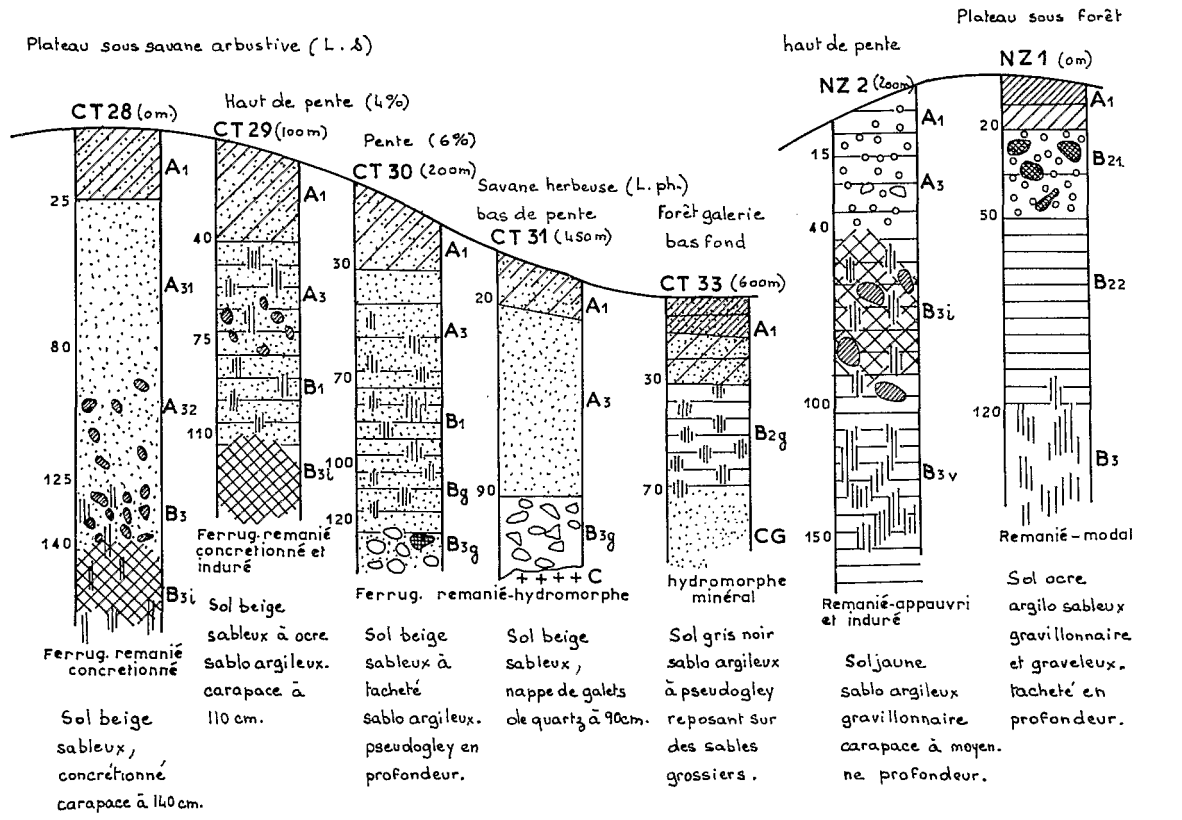 Plateau sous savane arbustive (L.S)
CT28 (0m)
A1
25
A31
80
A32
125
B3
140
B3i
Ferrug. remanié
concrétionné
Sol beige
sableux,
concrétionné
carapace à 140cm.
Haut de pente (4%)
CT29 (100m)
A1
40
A3
75
B1
110
B3i
Ferrug. remanié
concretionné et
induré
Sol beige
sableux à ocre
sablo argileux.
carapace à
110 cm.
Pente (6%)
CT30 (200m)
A1
30
A3
70
B1
100
Bg
120
B3g
Ferrug. remanié-hydromorphe
Sol beige
sableux à
tacheté
sablo argileux.
pseudogley en
profondeur.
Savane herbeuse (L.ph.)
bas de pente
CT31 (450m)
A1
20
A3
90
B3g
C
Sol beige
sableux,
nappe de galets
de quartz à 90cm.
Forêt galerie
bas fond
CT33 (600m)
A1
30
B2g
70
CG
hydromorphe
minéral
Sol gris noir
sablo argileux
à pseudogley
reposant sur
des sables
grossiers.
haut de pente
NZ2 (200m)
A1
15
A3
40
B3i
100
B3v
150
Remanié-appauvri
et induré
Sol jaune
sablo argileux
gravillonnaire
carapace à moyen.
ne profondeur.
Plateau sous forêt
NZ1 (0m)
A1
20
B21
50
B22
120
B3
Remanié-modal
Sol ocre
argilo sableux
gravillonnaire
et graveleux.
tacheté en
profondeur.